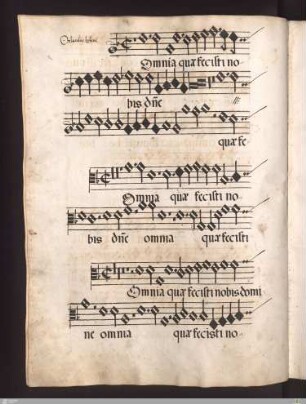 Orlando Lassus
Omnia quæ fecisti no
bis dñe
quæ fe
Omnia quæ fecisti no
bis dñe omnia quæ fecisti
Omnia quæ fecisti nobis domi
ne omnia quæ fecisti no